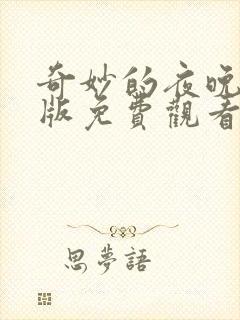 奇妙的夜晚
版免費觀看
思夢語